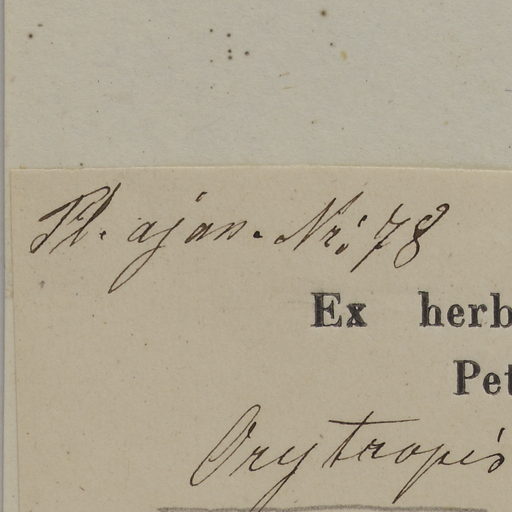 Fl. ajan. Nr: 78
Ex herb
Pet
Oxytropis